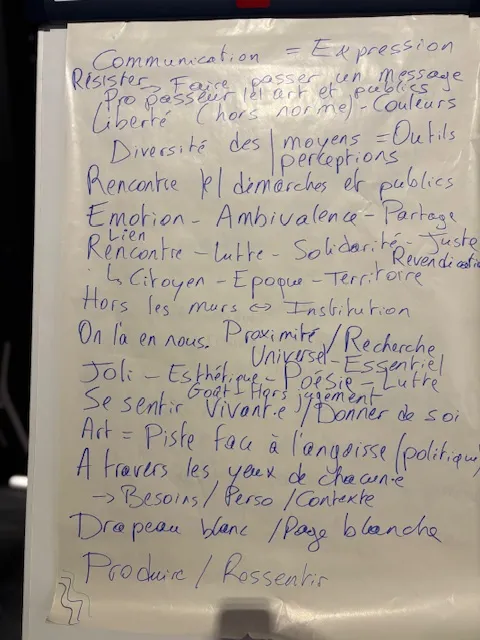 Communication = Expression
Résister → Faire passer un message
Pro passeur |e| art et publics
Liberté (hors norme) - Couleurs
Diversité des | moyens = Outils
perceptions
Rencontre |e| démarches et publics
Emotion - Ambivalence - Partage
Lien
Rencontre - Lutte - Solidarité - Juste
Revendication
↳ Citoyen - Epoque - Territoire
Hors les murs ⇔ Institution
On l'a en nous. Proximité / Recherche
Universel - Essentiel
Joli - Esthétique - Poésie - Lutte
Goût - Hors jugement
Se sentir Vivant·e / Donner de soi
Art = Piste face à l'angoisse (politique)
A travers les yeux de chacun·e
→ Besoins / Perso / Contexte
Drapeau blanc / Page blanche
Produire / Ressentir